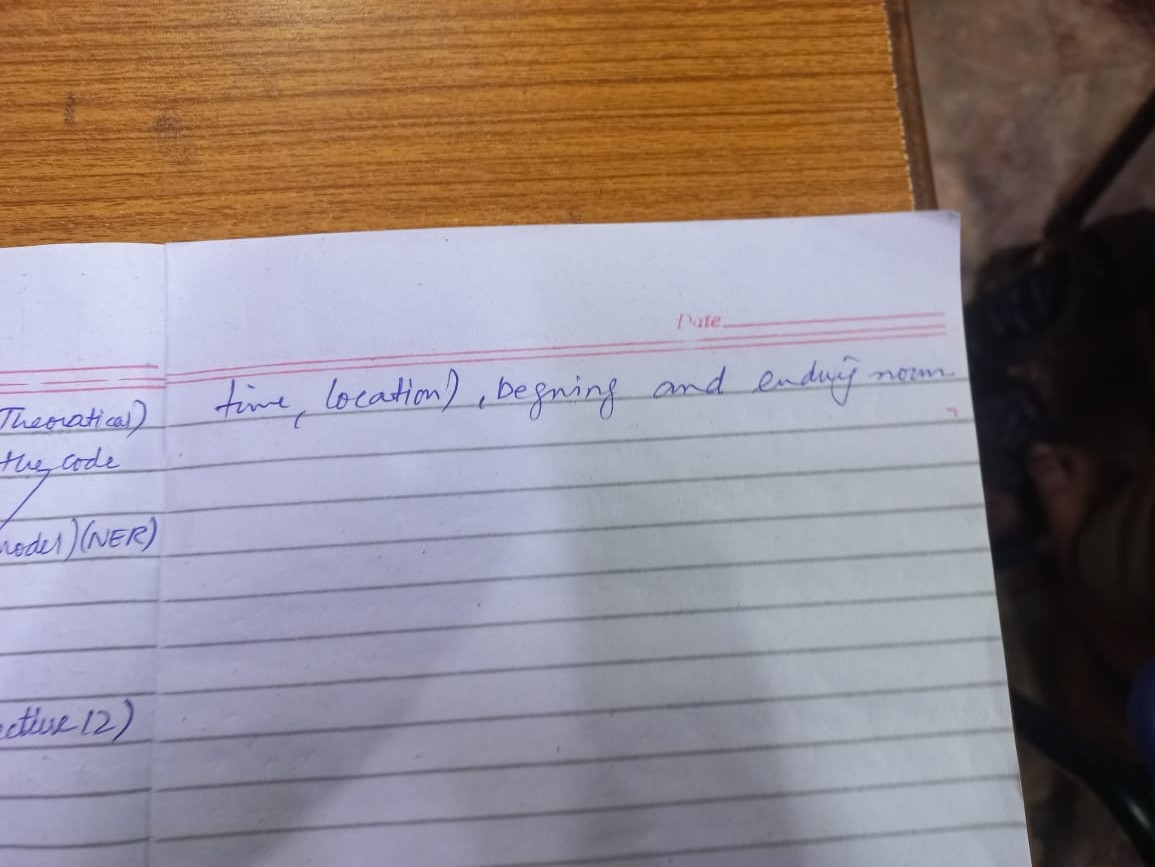 Date
Theoratical)
the code
model) (NER)
ective 12)
time, location), begning and ending noun